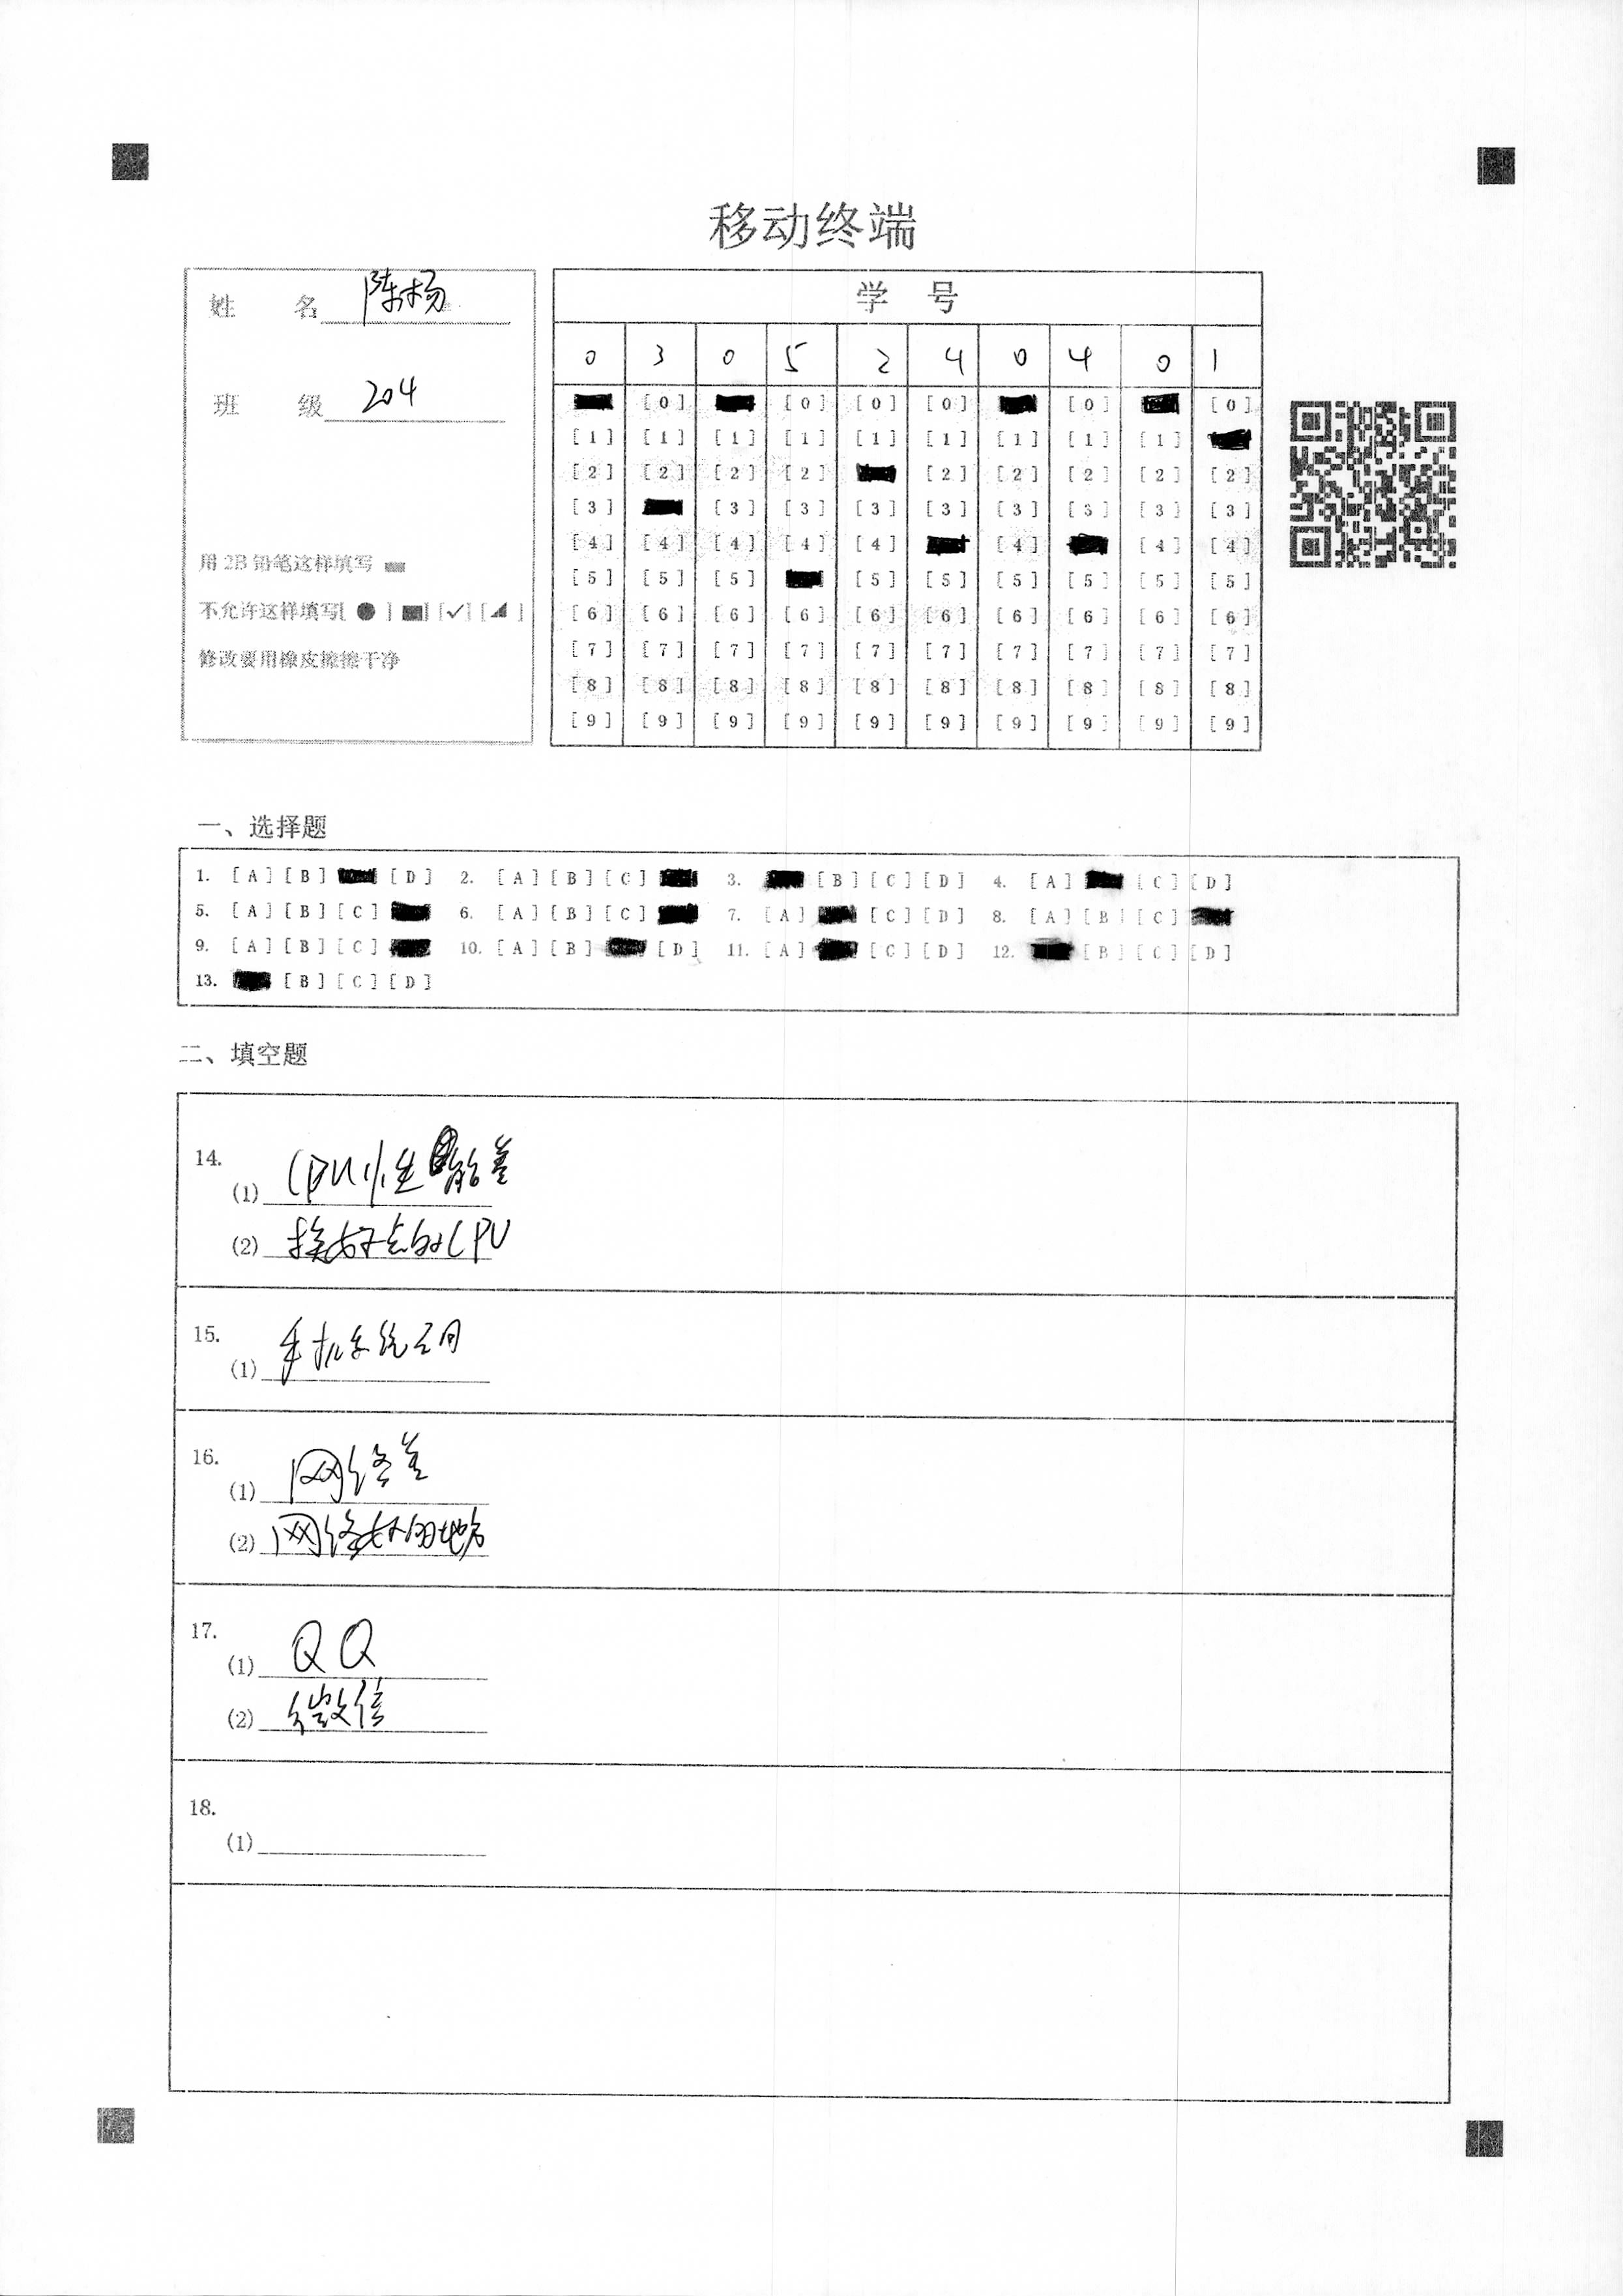 移动终端
姓 名 陈杨
班 级 204
用 2B 铅笔这样填写
不允许这样填写[ ● ] ■] [✓] [◢ ]
修改要用橡皮擦擦干净
学 号
0 3 0 5 2 4 0 4 0 1
[0] [0] [0] [0] [0] [0]
[1] [1] [1] [1] [1] [1] [1] [1] [1]
[2] [2] [2] [2] [2] [2] [2] [2] [2]
[3] [3] [3] [3] [3] [3] [3] [3] [3]
[4] [4] [4] [4] [4] [4] [4] [4]
[5] [5] [5] [5] [5] [5] [5] [5] [5]
[6] [6] [6] [6] [6] [6] [6] [6] [6] [6]
[7] [7] [7] [7] [7] [7] [7] [7] [7] [7]
[8] [8] [8] [8] [8] [8] [8] [8] [8] [8]
[9] [9] [9] [9] [9] [9] [9] [9] [9] [9]
一、选择题
1. [A] [B] [D] 2. [A] [B] [C] 3. [B] [C] [D] 4. [A] [C] [D]
5. [A] [B] [C] 6. [A] [B] [C] 7. [A] [C] [D] 8. [A] [B] [C]
9. [A] [B] [C] 10. [A] [B] [D] 11. [A] [C] [D] 12. [B] [C] [D]
13. [B] [C] [D]
二、填空题
14.
(1) CPU性能差
(2) 换好点的CPU
15.
(1) 手机系统不同
16.
(1) 网络差
(2) 网络好的地方
17.
(1) QQ
(2) 微信
18.
(1)